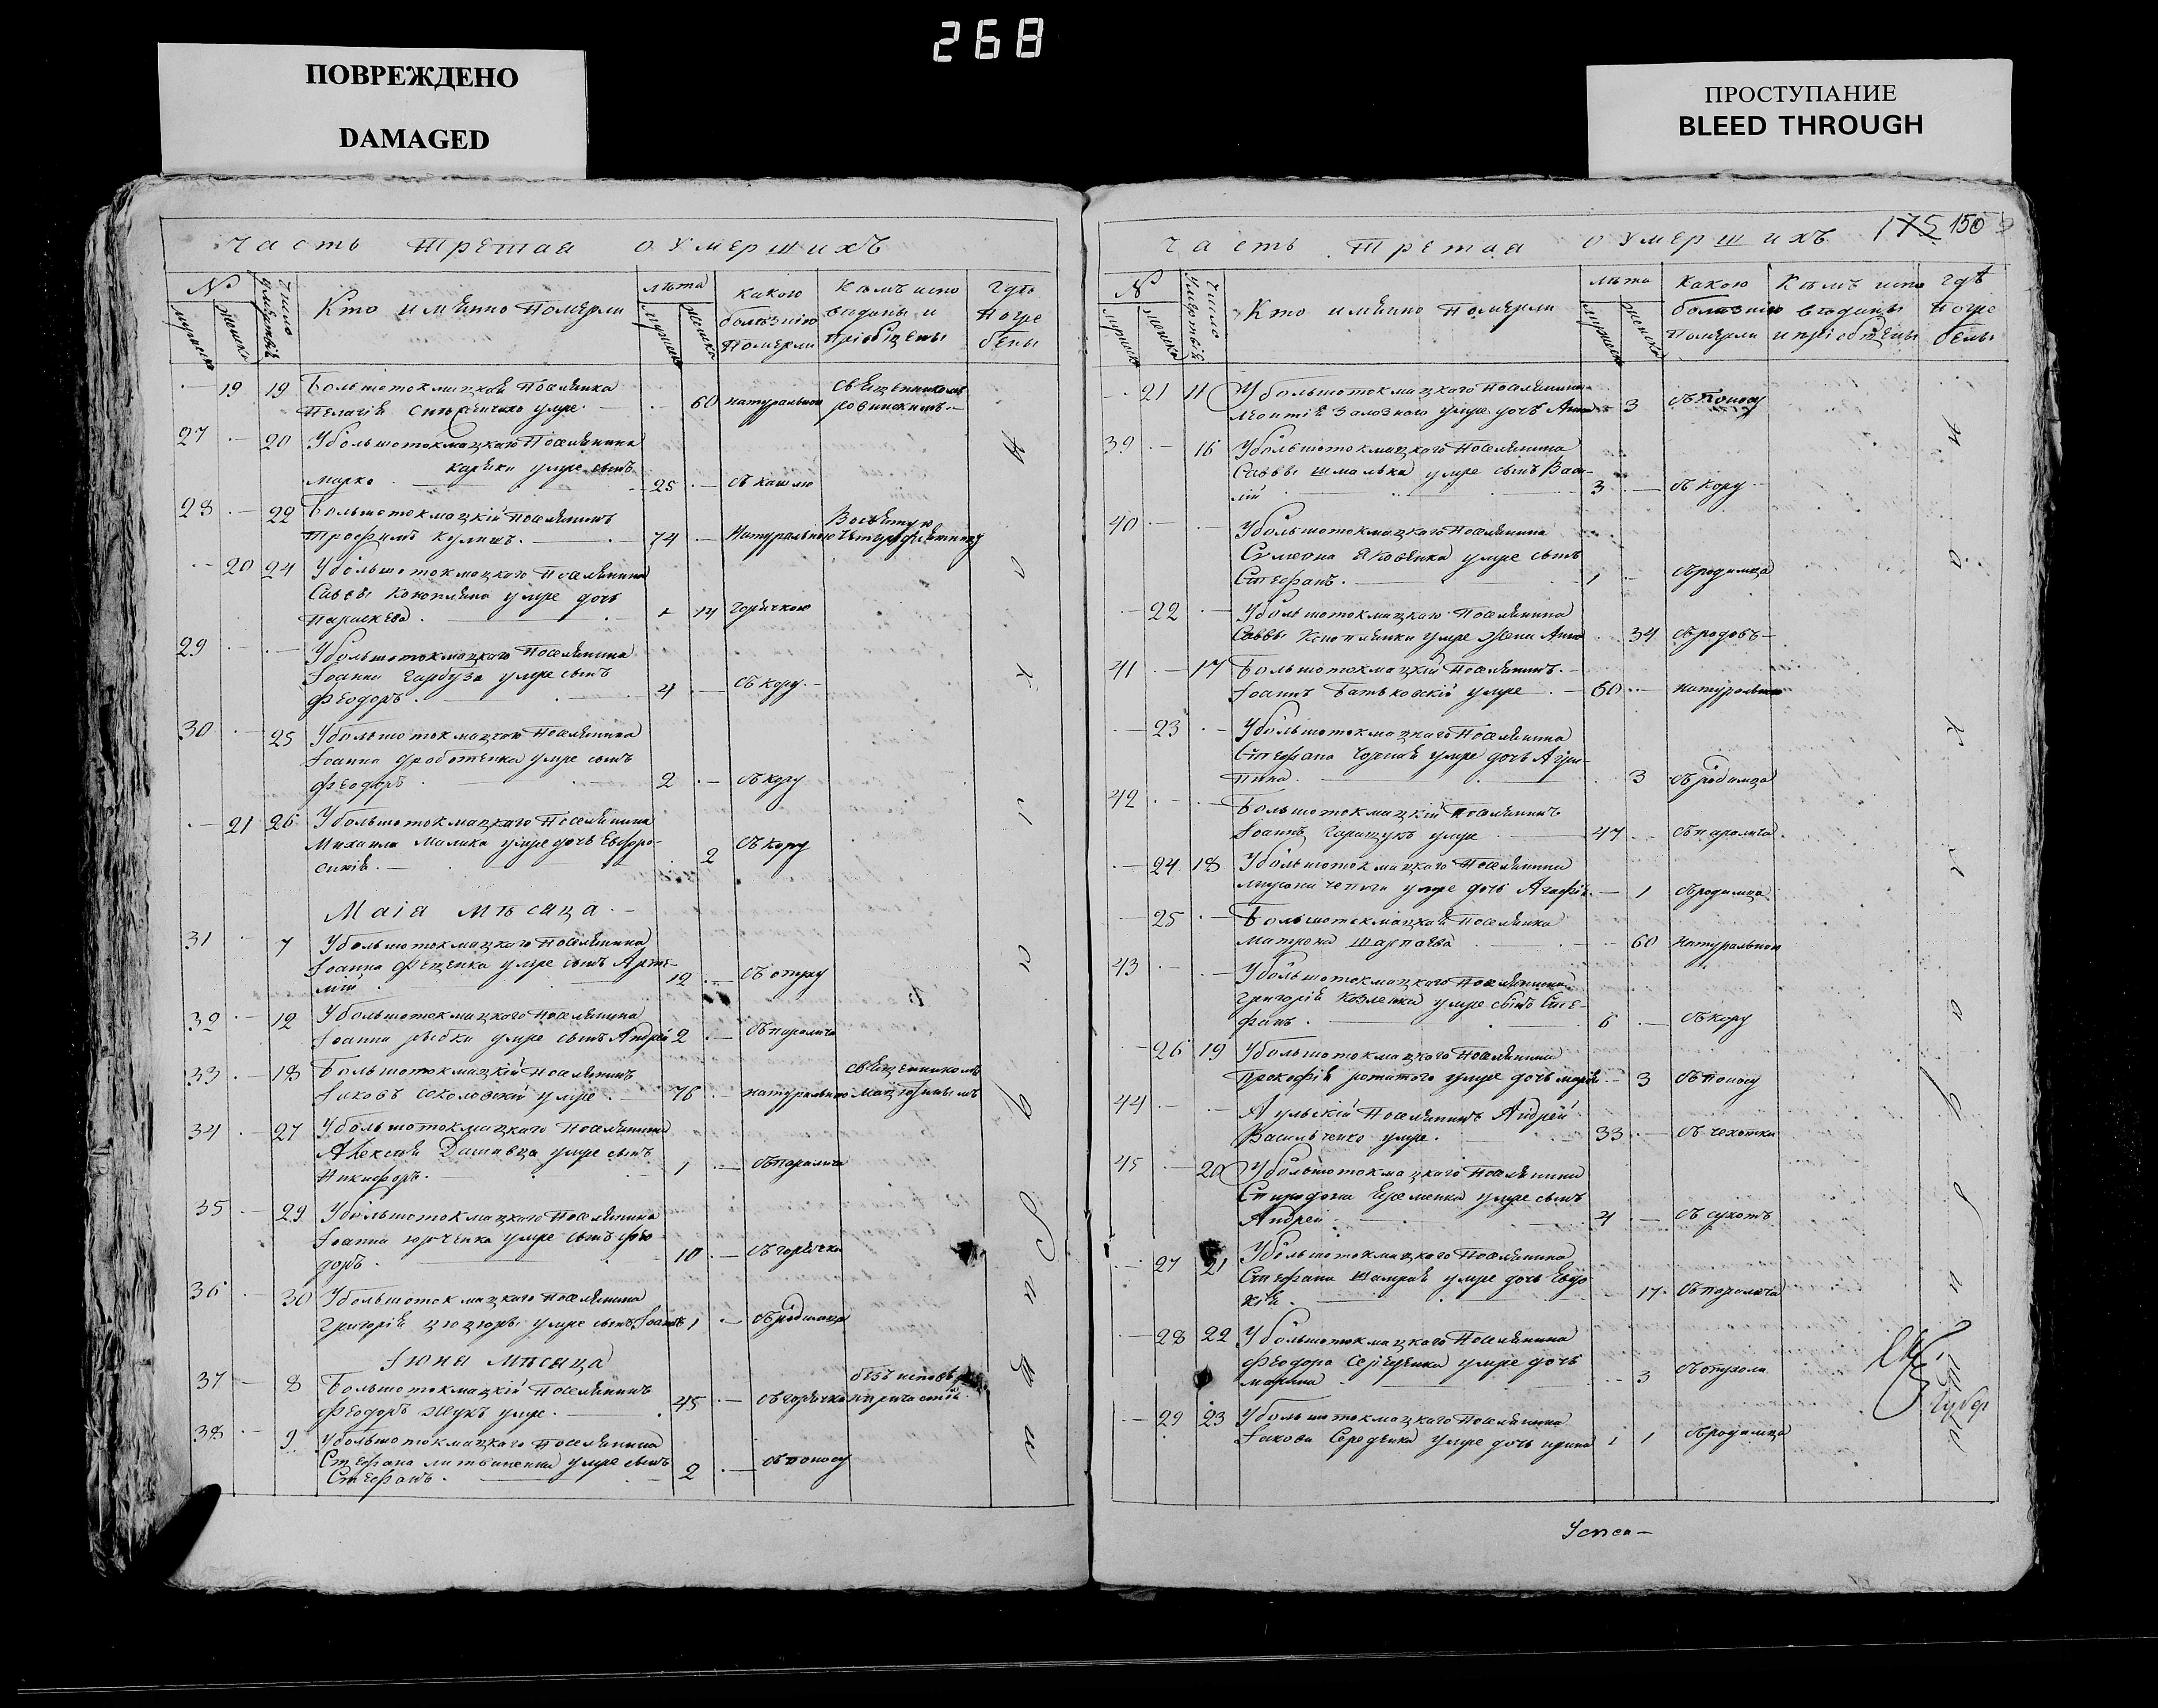 268
ПОВРЕЖДЕНО
DAMAGED
ПРОСТУПАНИЕ
BLEED THROUGH
Часть третая о умершихъ
№
мужска
женска
Число умертвія
Кто имянно Померли
лѣта
мужска
женска
какою болѣзнію Померли
Кѣмъ испо
ведоны и
пріобщены
Гдѣ
Погре
бены
19 19 Большетокмацкая Поселянка
Пелагія умре 60 натурально священникомъ
27 20 У большотокмацкаго Поселянина
марко умре сынъ 25 съ кашлю
28 22 Большотокмацкій Поселянинъ
Трофимъ Кулишъ. 74 Натурально
20 24 У большотокмацкаго Поселянина
Саввы Коноплина умре дочь
Параскева. 14 Горячкою
29 У большотокмацкаго Поселянина
Іоанна Гарбуза умре сынъ
Феодоръ. 4 съ кору
30 25 У большотокмацкаго Поселянина
Іоанна умре сынъ
Феодоръ 2 съ кору
21 26 У большотокмацкаго Поселянина
Михаила Малика умре дочь Евфро-
синія. 2 съ кору
Маія Мѣсяца
31 7 У большотокмацкаго Поселянина
Іоанна Фещенка умре сынъ Арте-
мій 12
32 12 У большотокмацкаго Поселянина
Іоанна рыбки умре сынъ Андрей 2 съ паралича
33 18 Большотокмацкій Поселянинъ
Іаковъ Соколовскій умре 76 натурально священникомъ
34 27 У большотокмацкаго Поселянина
Алексѣя умре сынъ
Никифоръ. 1 съ паралича
35 29 У большотокмацкаго Поселянина
Іоанна Юрченка умре сынъ Фео
доръ. 10 съ горячки
36 30 У большотокмацкаго Поселянина
Григорія Цюцюры умре сынъ Іоаннъ 1 съ родимца
Іюня Мѣсяца
37 8 Большотокмацкій Поселянинъ
Феодоръ Жукъ умре. 45 съ горячки
38 9 У большотокмацкаго Поселянина
Стефана литвиненка умре сынъ
Стефанъ. 2 съ поносу
Часть Третая о умершихъ 175 150
№
мужска
женска
Число умертвія
Кто имянно Померли
лѣта
мужска
женска
Какою
болезнію
Померли
Кѣмъ испо
ведоны
и пріобщены
Гдѣ
погре
бены
21 11 У большотокмацкаго Поселянина
Леонтія Залознаго умре дочь Анна 3 съ Поносу
39 16 У большотокмацкаго Поселянина
Саввы шмалька умре сынъ Васи-
лій 3 съ Кору
40 У большотокмацкаго Поселянина
Симеона Яковенка умре сынъ
Стефанъ. 1 съ родимца
22 У большотокмацкаго Поселянина
Саввы Коноплянки умре жена Анна 34 съ родовъ
41 17 Большотокмацкій Поселянинъ
Іоаннъ Батьковскій умре 60 натурально
23 У большотокмацкаго Поселянина
Стефана Чорная умре дочь Агри-
пина. 3 съ родимца
42 Большотокмацкій Поселянинъ
Іоаннъ Гаращукъ умре 47 съ паралича
24 18 У большотокмацкаго Поселянина
чепиги умре дочь Агафія 1 съ родимца
25 Большотокмацкая Поселянка
Матрона 60 Натурально
43 У большотокмацкаго Поселянина
Григорія Козленка умре сынъ Сте-
фанъ. 6 съ кору
26 19 У большотокмацкаго Поселянина
Прокофія умре дочь марія 3 съ поносу
44 Аульскій Поселянинъ Андрей
Васильченко умре. 33 съ чехотки
45 20 У большотокмацкаго Поселянина
Спиридона Еременка умре сынъ
Андрей. 4 съ сухотъ
27 21 У большотокмацкаго Поселянина
Стефана Шамрая умре дочь Евдо
кія. 17 съ паралича
28 22 У большотокмацкаго Поселянина
Феодора умре дочь
марина 3
29 23 У большотокмацкаго Поселянина
Іакова Середенка умре дочь ирина 1 съ родимца
Успен-